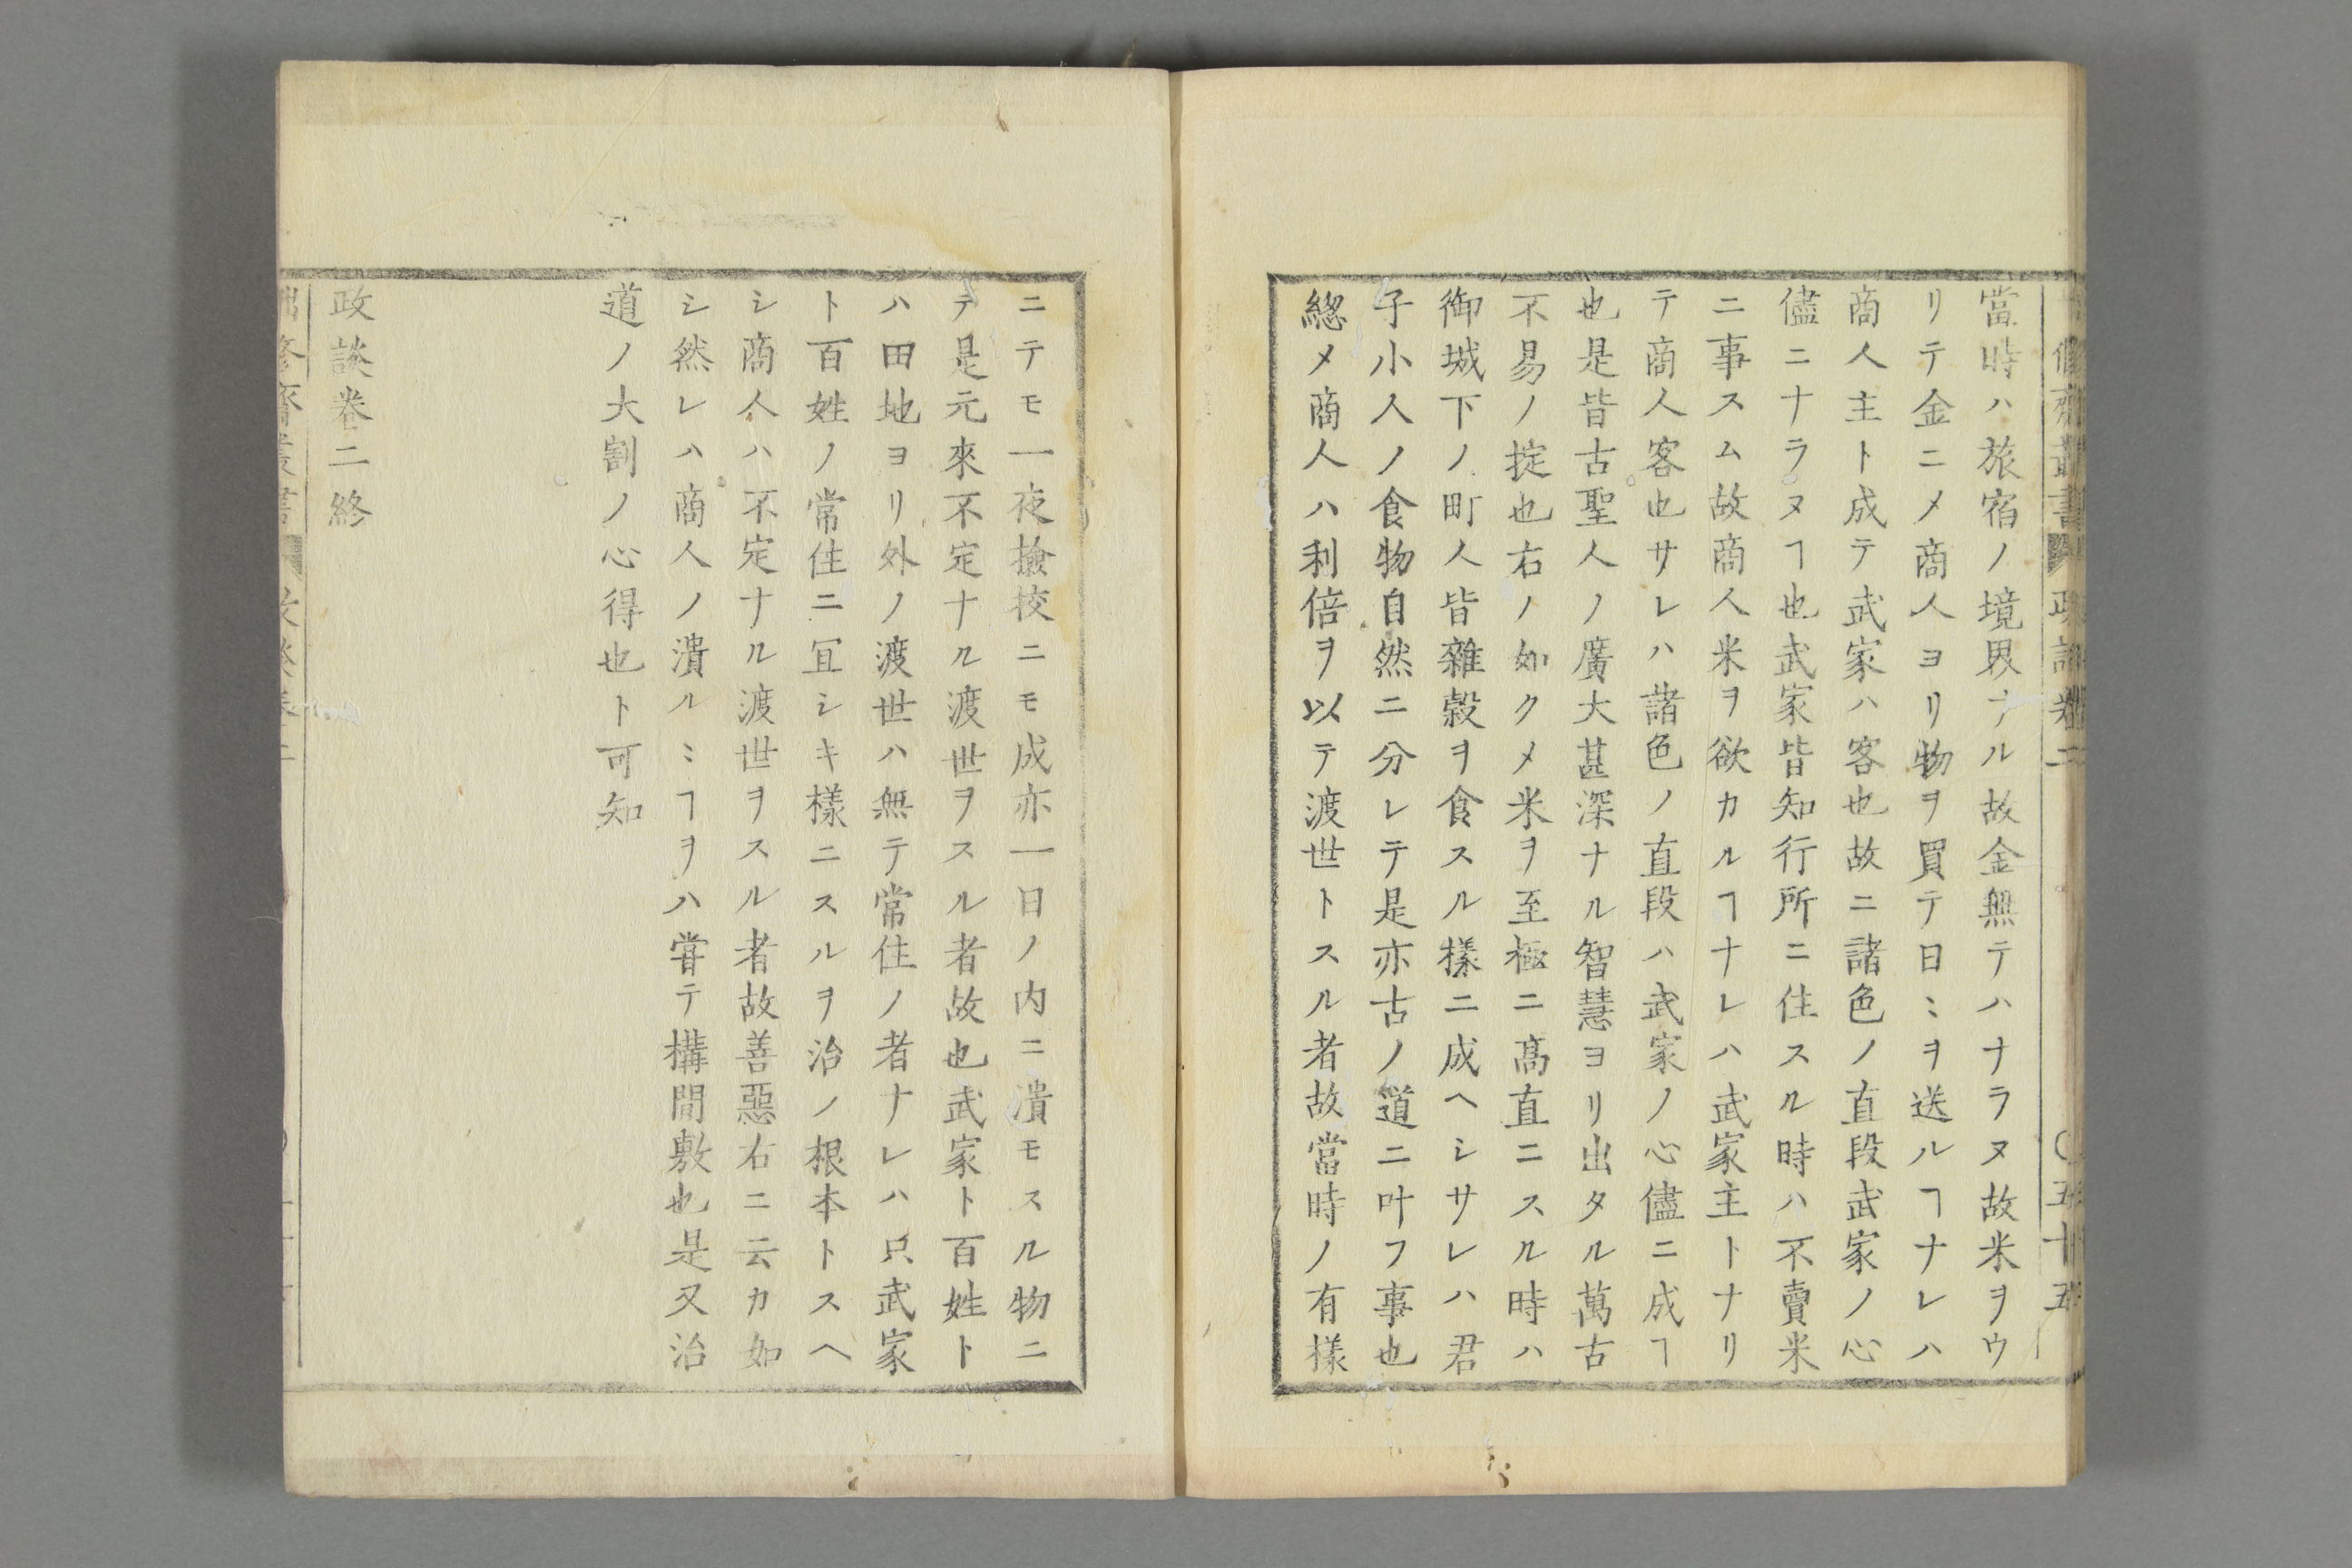 當時ハ旅宿ノ境界ナル故金無テハナラヌ故米ヲウ
リテ金ニメ商人ヨリ物ヲ買テ日ミヲ送ルヿナレハ
商人主ト成テ武家ハ客也故ニ諸色ノ直段武家ノ心
儘ニナラヌヿ也武家皆知行所ニ住スル時ハ不賣米
ニ事スム故商人米ヲ欲カルヿナレハ武家主トナリ
テ商人客也サレハ諸色ノ直段ハ武家ノ心儘ニ成ヿ
也是皆古聖人ノ廣大甚深ナル智慧ヨリ出タル萬古
不易ノ掟也右ノ如クメ米ヲ至極ニ髙直ニスル時ハ
御城下ノ町人皆雜穀ヲ食スル樣ニ成ヘシサレハ君
子小人ノ食物自然ニ分レテ是亦古ノ道ニ叶フ事也
總メ商人ハ利倍ヲ以テ渡世トスル者故當時ノ有樣
ニテモ一夜撿挍ニモ成亦一日ノ内ニ潰モスル物ニ
テ是元來不定ナル渡世ヲスル者故也武家ト百姓ト
ハ田地ヨリ外ノ渡世ハ無テ常住ノ者ナレハ只武家
ト百姓ノ常住ニ冝シキ樣ニスルヲ治ノ根本トスヘ
シ商人ハ不定ナル渡世ヲスル者故善惡右ニ云カ如
シ然レハ商人ノ潰ルミヿヲハ嘗テ構間敷也是又治
道ノ大割ノ心得也ト可知
政談卷二終